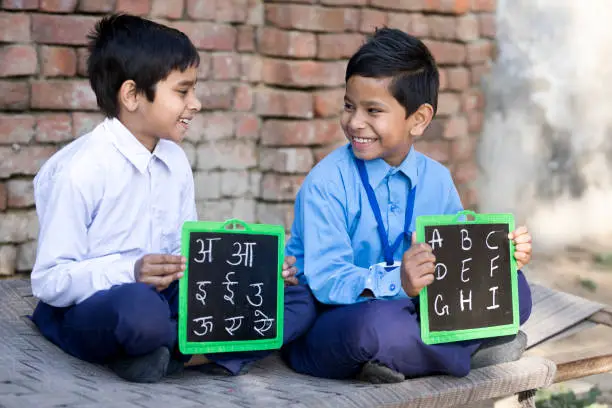 अ आ
इ ई उ
ऊ ए ऐ
A B C
D E F
G H I